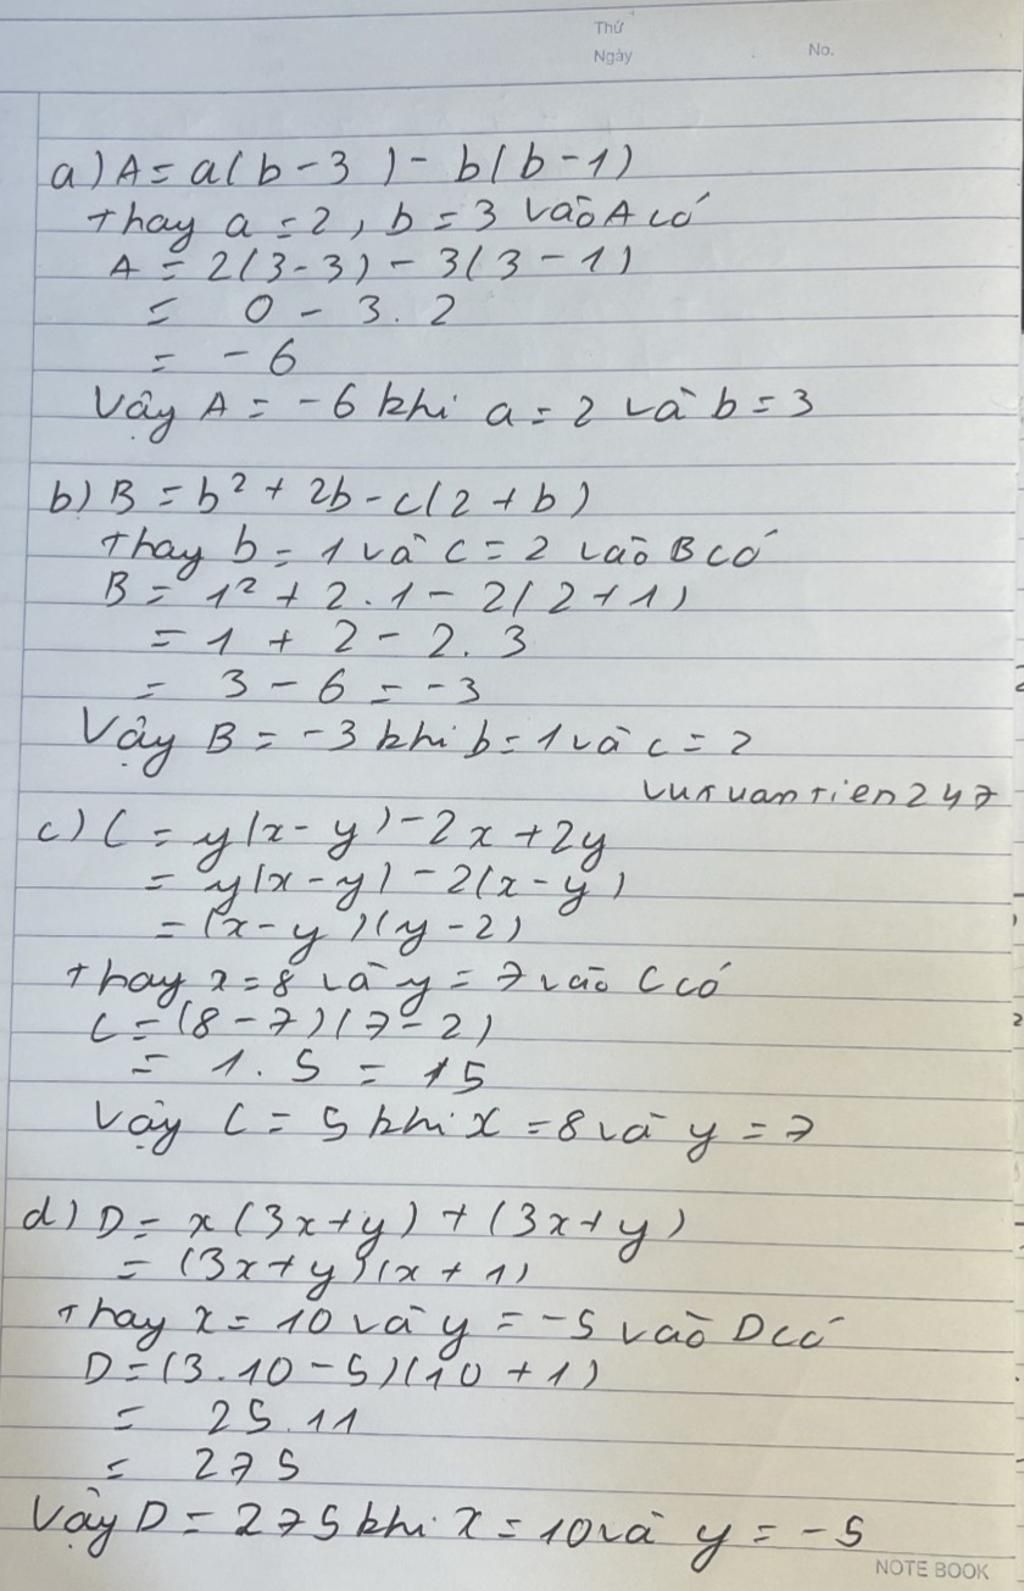 Thứ
Ngày
No.
a) A = a(b - 3) - b(b - 1)
Thay a = 2, b = 3 vào A có
A = 2(3 - 3) - 3(3 - 1)
= 0 - 3.2
= - 6
Vậy A = -6 khi a = 2 và b = 3
b) B = b² + 2b - c(2 + b)
Thay b = 1 và c = 2 vào B có
B = 1² + 2.1 - 2(2 + 1)
= 1 + 2 - 2.3
= 3 - 6 = -3
Vậy B = -3 khi b = 1 và c = 2
vuxuantien247
c) C = y(x - y) - 2x + 2y
= y(x - y) - 2(x - y)
= (x - y)(y - 2)
Thay x = 8 và y = 7 vào C có
C = (8 - 7)(7 - 2)
= 1.5 = 5
Vậy C = 5 khi x = 8 và y = 7
d) D = x(3x + y) + (3x + y)
= (3x + y)(x + 1)
Thay x = 10 và y = -5 vào D có
D = (3.10 - 5)(10 + 1)
= 25.11
= 275
Vậy D = 275 khi x = 10 và y = -5
NOTE BOOK